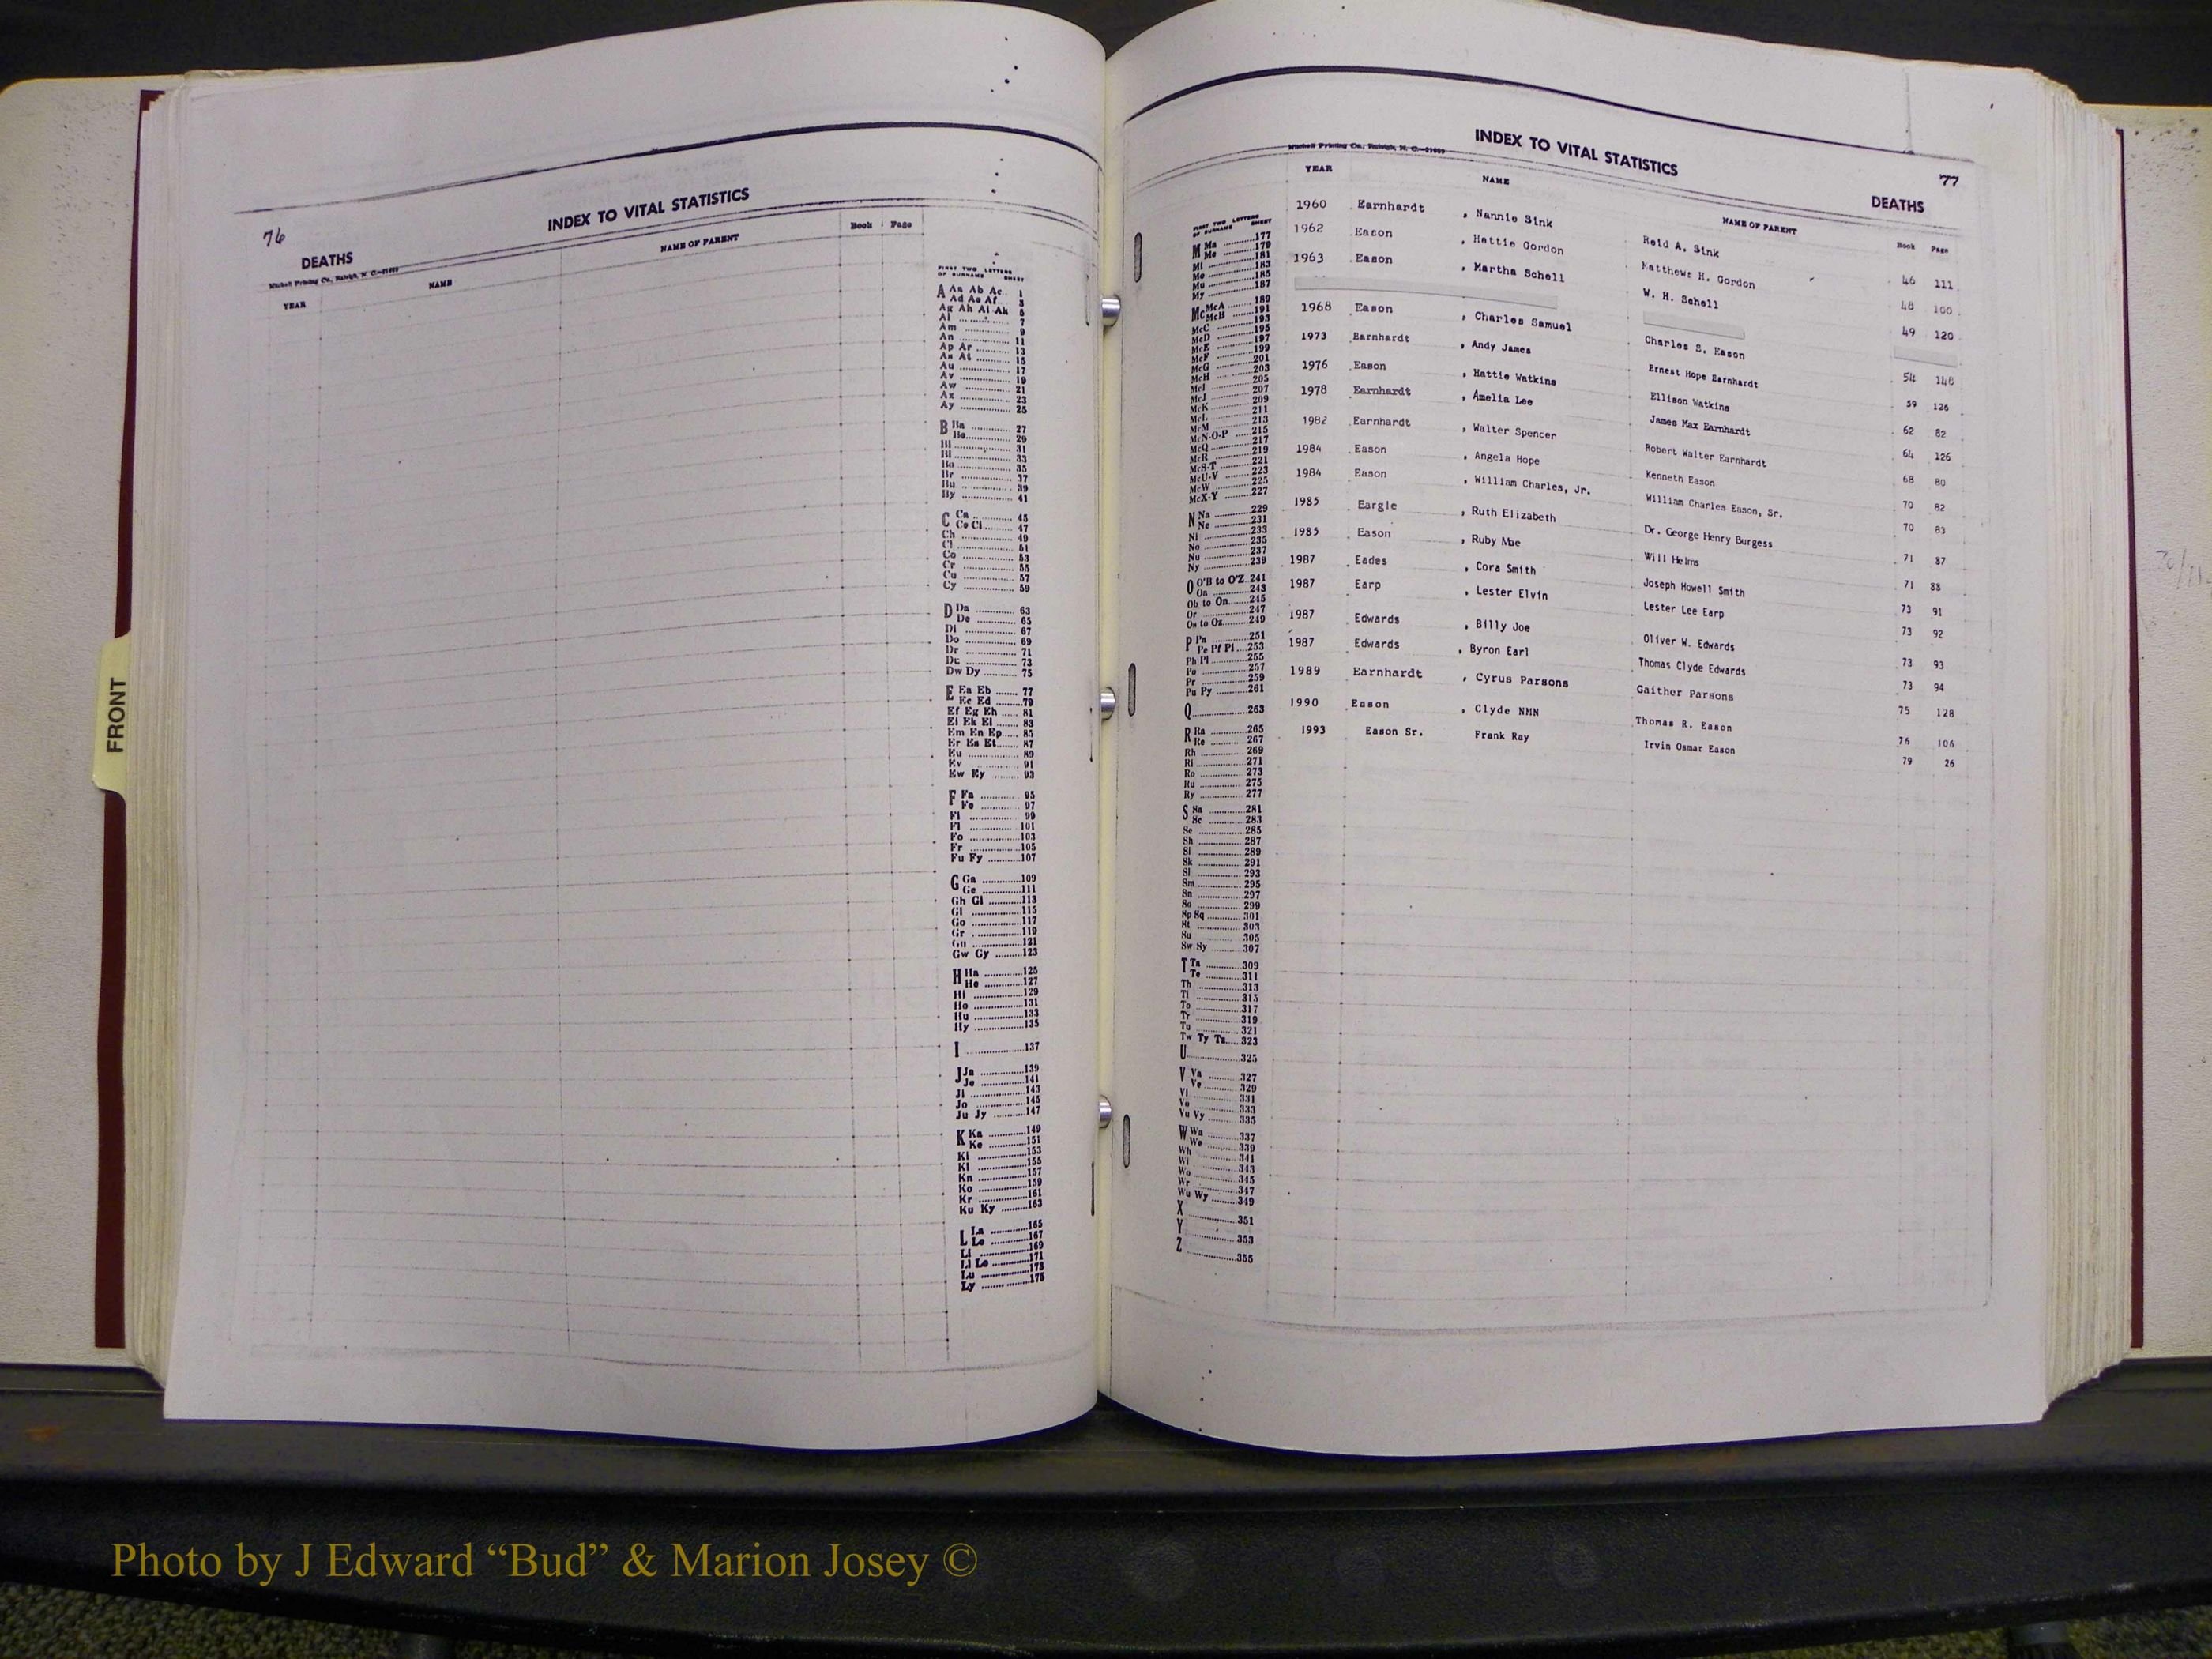 76
INDEX TO VITAL STATISTICS
DEATHS
Mitchell Printing Co., Raleigh, N. C.
YEAR NAME NAME OF PARENT Book Page
FIRST TWO LETTERS
OF SURNAME SHEET
A Aa Ab Ac 1
Ad Ae Af 3
Ag Ah Ai Ak 5
Al 7
Am 9
An 11
Ap Ar 13
As At 15
Au 17
Av 19
Aw 21
Ax 23
Ay 25
B Ba 27
Be 29
Bi 31
Bl 33
Bo 35
Br 37
Bu 39
By 41
C Ca 45
Ce Ci 47
Ch 49
Cl 51
Co 53
Cr 55
Cu 57
Cy 59
D Da 63
De 65
Di 67
Do 69
Dr 71
Du 73
Dw Dy 75
E Ea Eb 77
Ec Ed 79
Ef Eg Eh 81
Ei Ek El 83
Em En Ep 85
Er Es Et 87
Eu 89
Ev 91
Ew Ey 93
F Fa 95
Fe 97
Fi 99
Fl 101
Fo 103
Fr 105
Fu Fy 107
G Ga 109
Ge 111
Gh Gi 113
Gl 115
Go 117
Gr 119
Gu 121
Gw Gy 123
H Ha 125
He 127
Hi 129
Ho 131
Hu 133
Hy 135
I 137
J Ja 139
Je 141
Ji 143
Jo 145
Ju Jy 147
K Ka 149
Ke 151
Ki 153
Kl 155
Kn 157
Ko 159
Kr 161
Ku Ky 163
L La 165
Le 167
Li 169
Ll Lo 171
Lu 173
Ly 175
INDEX TO VITAL STATISTICS
77
DEATHS
Mitchell Printing Co., Raleigh, N. C.
YEAR NAME NAME OF PARENT Book Page
1960 Earnhardt , Nannie Sink Reid A. Sink 46 111
1962 Eason , Hattie Gordon Matthews H. Gordon 48 100
1963 Eason , Martha Schell W. H. Schell 49 120
1968 Eason , Charles Samuel Charles S. Eason 54 148
1973 Earnhardt , Andy James Ernest Hope Earnhardt 59 126
1976 Eason , Hattie Watkins Ellison Watkins 62 82
1978 Earnhardt , Amelia Lee James Max Earnhardt 64 126
1982 Earnhardt , Walter Spencer Robert Walter Earnhardt 68 80
1984 Eason , Angela Hope Kenneth Eason 70 82
1984 Eason , William Charles, Jr. William Charles Eason, Sr. 70 83
1985 Eargle , Ruth Elizabeth Dr. George Henry Burgess 71 87
1985 Eason , Ruby Mae Will Helms 71 88
1987 Eades , Cora Smith Joseph Howell Smith 73 91
1987 Earp , Lester Elvin Lester Lee Earp 73 92
1987 Edwards , Billy Joe Oliver W. Edwards 73 93
1987 Edwards , Byron Earl Thomas Clyde Edwards 73 94
1989 Earnhardt , Cyrus Parsons Gaither Parsons 75 128
1990 Eason , Clyde NMN Thomas R. Eason 76 106
1993 Eason Sr. Frank Ray Irvin Osmar Eason 79 26
FIRST TWO LETTERS
OF SURNAME SHEET
M Ma 177
Me 179
Mi 181
Mo 183
Mu 185
My 187
Mc McA 189
McB 191
McC 193
McD 195
McE 197
McF 199
McG 201
McH 203
McI 205
McJ 207
McK 209
McL 211
McM 213
McN-O-P 215
McQ 217
McR 219
McS-T 221
McU-V 223
McW 225
McX-Y 227
N Na 229
Ne 231
Ni 233
No 235
Nu 237
Ny 239
O O'B to O'Z 241
Oa 243
Ob to On 245
Or 247
Os to Oz 249
P Pa 251
Pe Pf Pi 253
Ph Pl 255
Po 257
Pr 259
Pu Py 261
Q 263
R Ra 265
Re 267
Rh 269
Ri 271
Ro 273
Ru 275
Ry 277
S Sa 281
Sc 283
Se 285
Sh 287
Si 289
Sk 291
Sl 293
Sm 295
Sn 297
So 299
Sp Sq 301
St 303
Su 305
Sw Sy 307
T Ta 309
Te 311
Th 313
Ti 315
To 317
Tr 319
Tu 321
Tw Ty Tz 323
U 325
V Va 327
Ve 329
Vi 331
Vo 333
Vu Vy 335
W Wa 337
We 339
Wh 341
Wi 343
Wo 345
Wr 347
Wu Wy 349
X 351
Y 353
Z 355
FRONT
Photo by J Edward “Bud” & Marion Josey ©